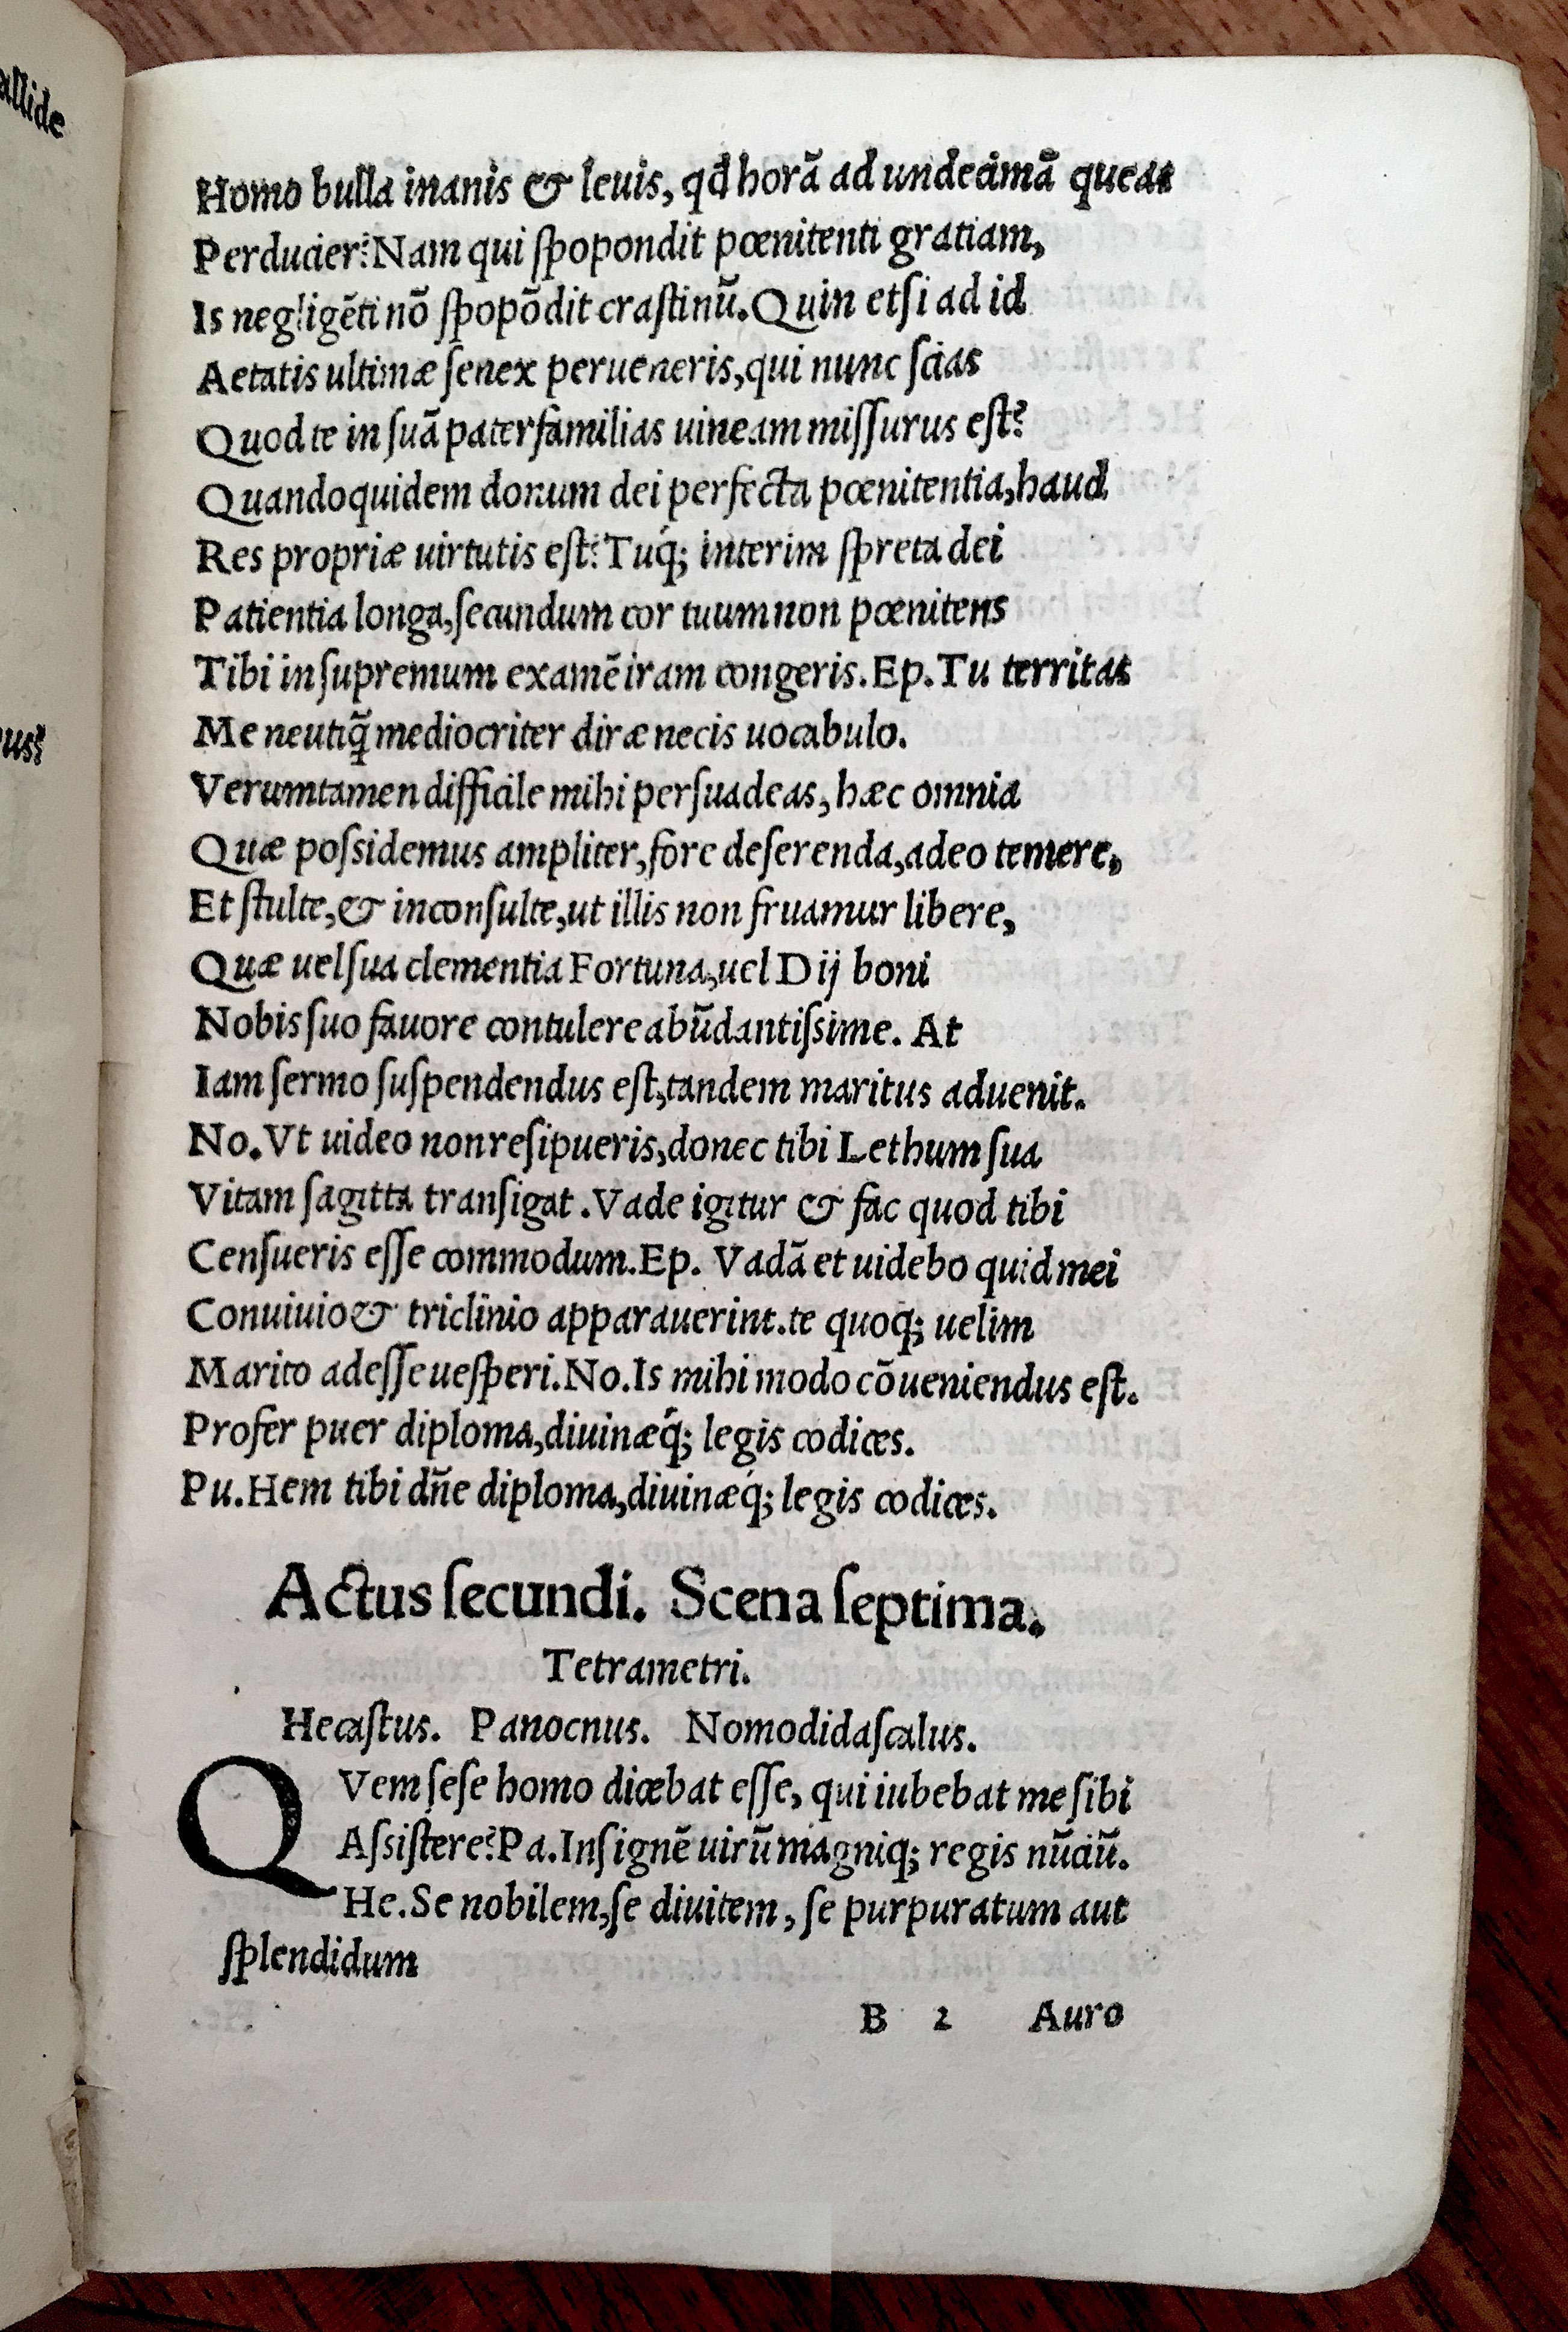 allide
us?
Homo bulla inanis & leuis, qđ horã ad undecimã queat
Perducier? Nam qui ſpopondit pœnitenti gratiam,
Is negligẽti nõ ſpopõdit craſtinũ. Quin etſi ad id
Aetatis ultimæ ſenex perueneris, qui nunc ſcias
Quod te in ſuã paterfamilias uineam miſſurus eſt?
Quandoquidem donum dei perfecta pœnitentia, haud
Res propriæ uirtutis eſt? Tuq́; interim ſpreta dei
Patientia longa, ſecundum cor tuum non pœnitens
Tibi in ſupremum examẽ iram congeris. Ep. Tu territas
Me neutiq̃ mediocriter diræ necis uocabulo.
Verumtamen difficile mihi perſuadeas, hæc omnia
Quæ poſsidemus ampliter, fore deſerenda, adeo temere,
Et ſtulte, & inconſulte, ut illis non fruamur libere,
Quæ uel ſua clementia Fortuna, uel Dij boni
Nobis ſuo fauore contulere abũdantiſsime. At
Iam ſermo ſuſpendendus eſt, tandem maritus aduenit.
No. Vt uideo non reſipueris, donec tibi Lethum ſua
Vitam ſagitta tranſigat. Vade igitur & fac quod tibi
Cenſueris eſſe commodum. Ep. Vadã et uidebo quid mei
Conuiuio & triclinio apparauerint. te quoq; uelim
Marito adeſſe ueſperi. No. Is mihi modo cõueniendus eſt.
Profer puer diploma, diuinæq́; legis codices.
Pu. Hem tibi dñe diploma, diuinæq́; legis codices.
Actus ſecundi. Scena ſeptima.
Tetrametri.
Hecaſtus. Panocnus. Nomodidaſcalus.
QVem ſeſe homo dicebat eſſe, qui iubebat me ſibi
Aſsiſtere? Pa. Inſignẽ uirũ magniq; regis nũciũ.
He. Se nobilem, ſe diuitem, ſe purpuratum aut
ſplendidum
B 2 Auro